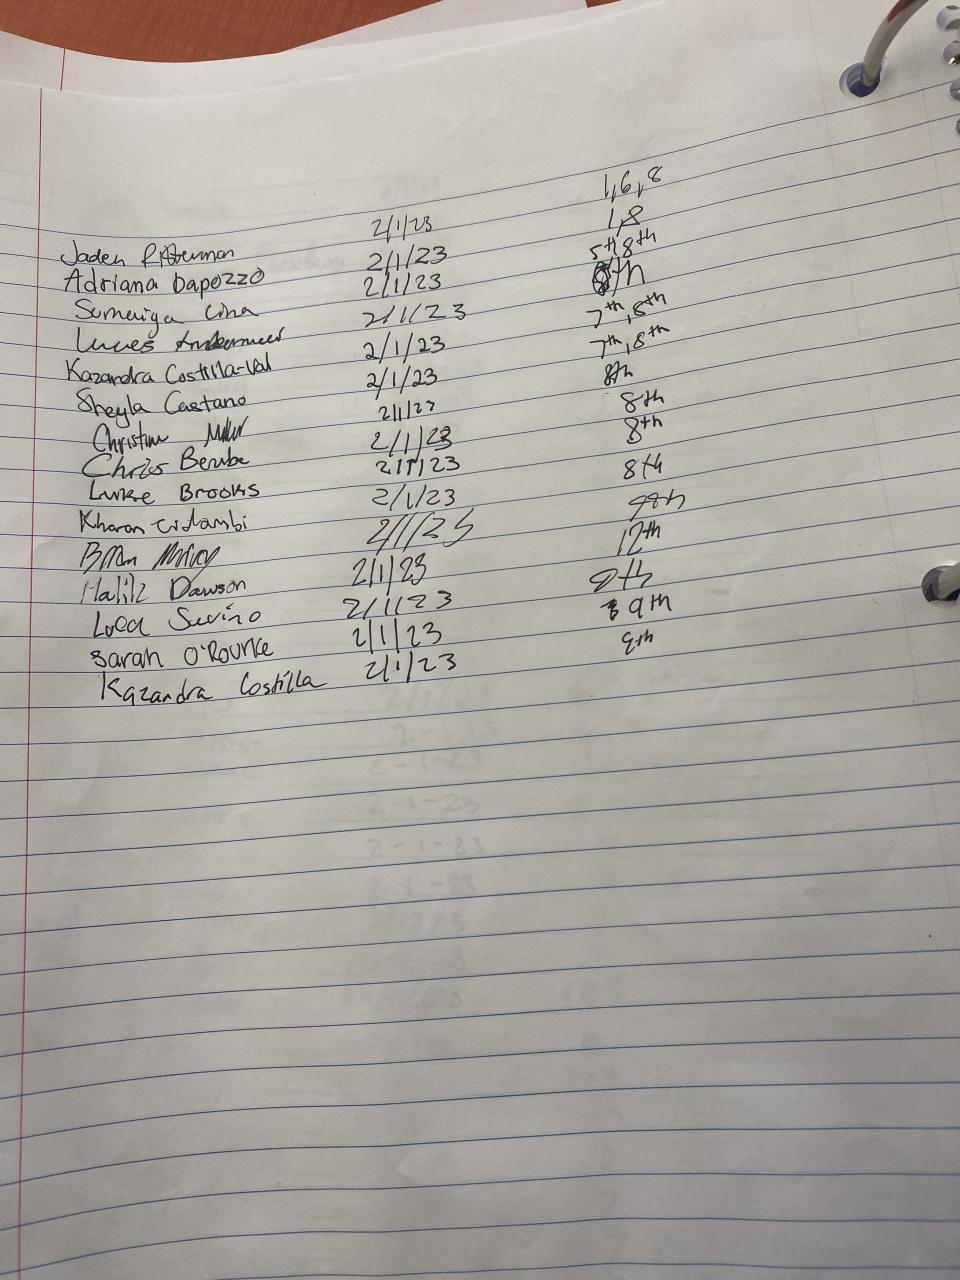 Jaden 2/1/23 1,6,8
Adriana Dapozzo 2/1/23 1,8
Sumaiya 2/1/23 5th, 8th
Lucas 2/1/23 8th
Kazandra Costilla-Val 2/1/23 7th, 8th
Sheyla Caetano 2/1/23 7th, 8th
Christine 2/1/23 8th
Chris Berube 2/1/23 8th
Luke Brooks 2/1/23 8th
Kharan 2/1/23 8th
Brian 2/1/23
Dawson 2/1/23 12th
Luca 2/1/23 8th
Sarah O'Rourke 2/1/23 9th
Kazandra Costilla 2/1/23 8th